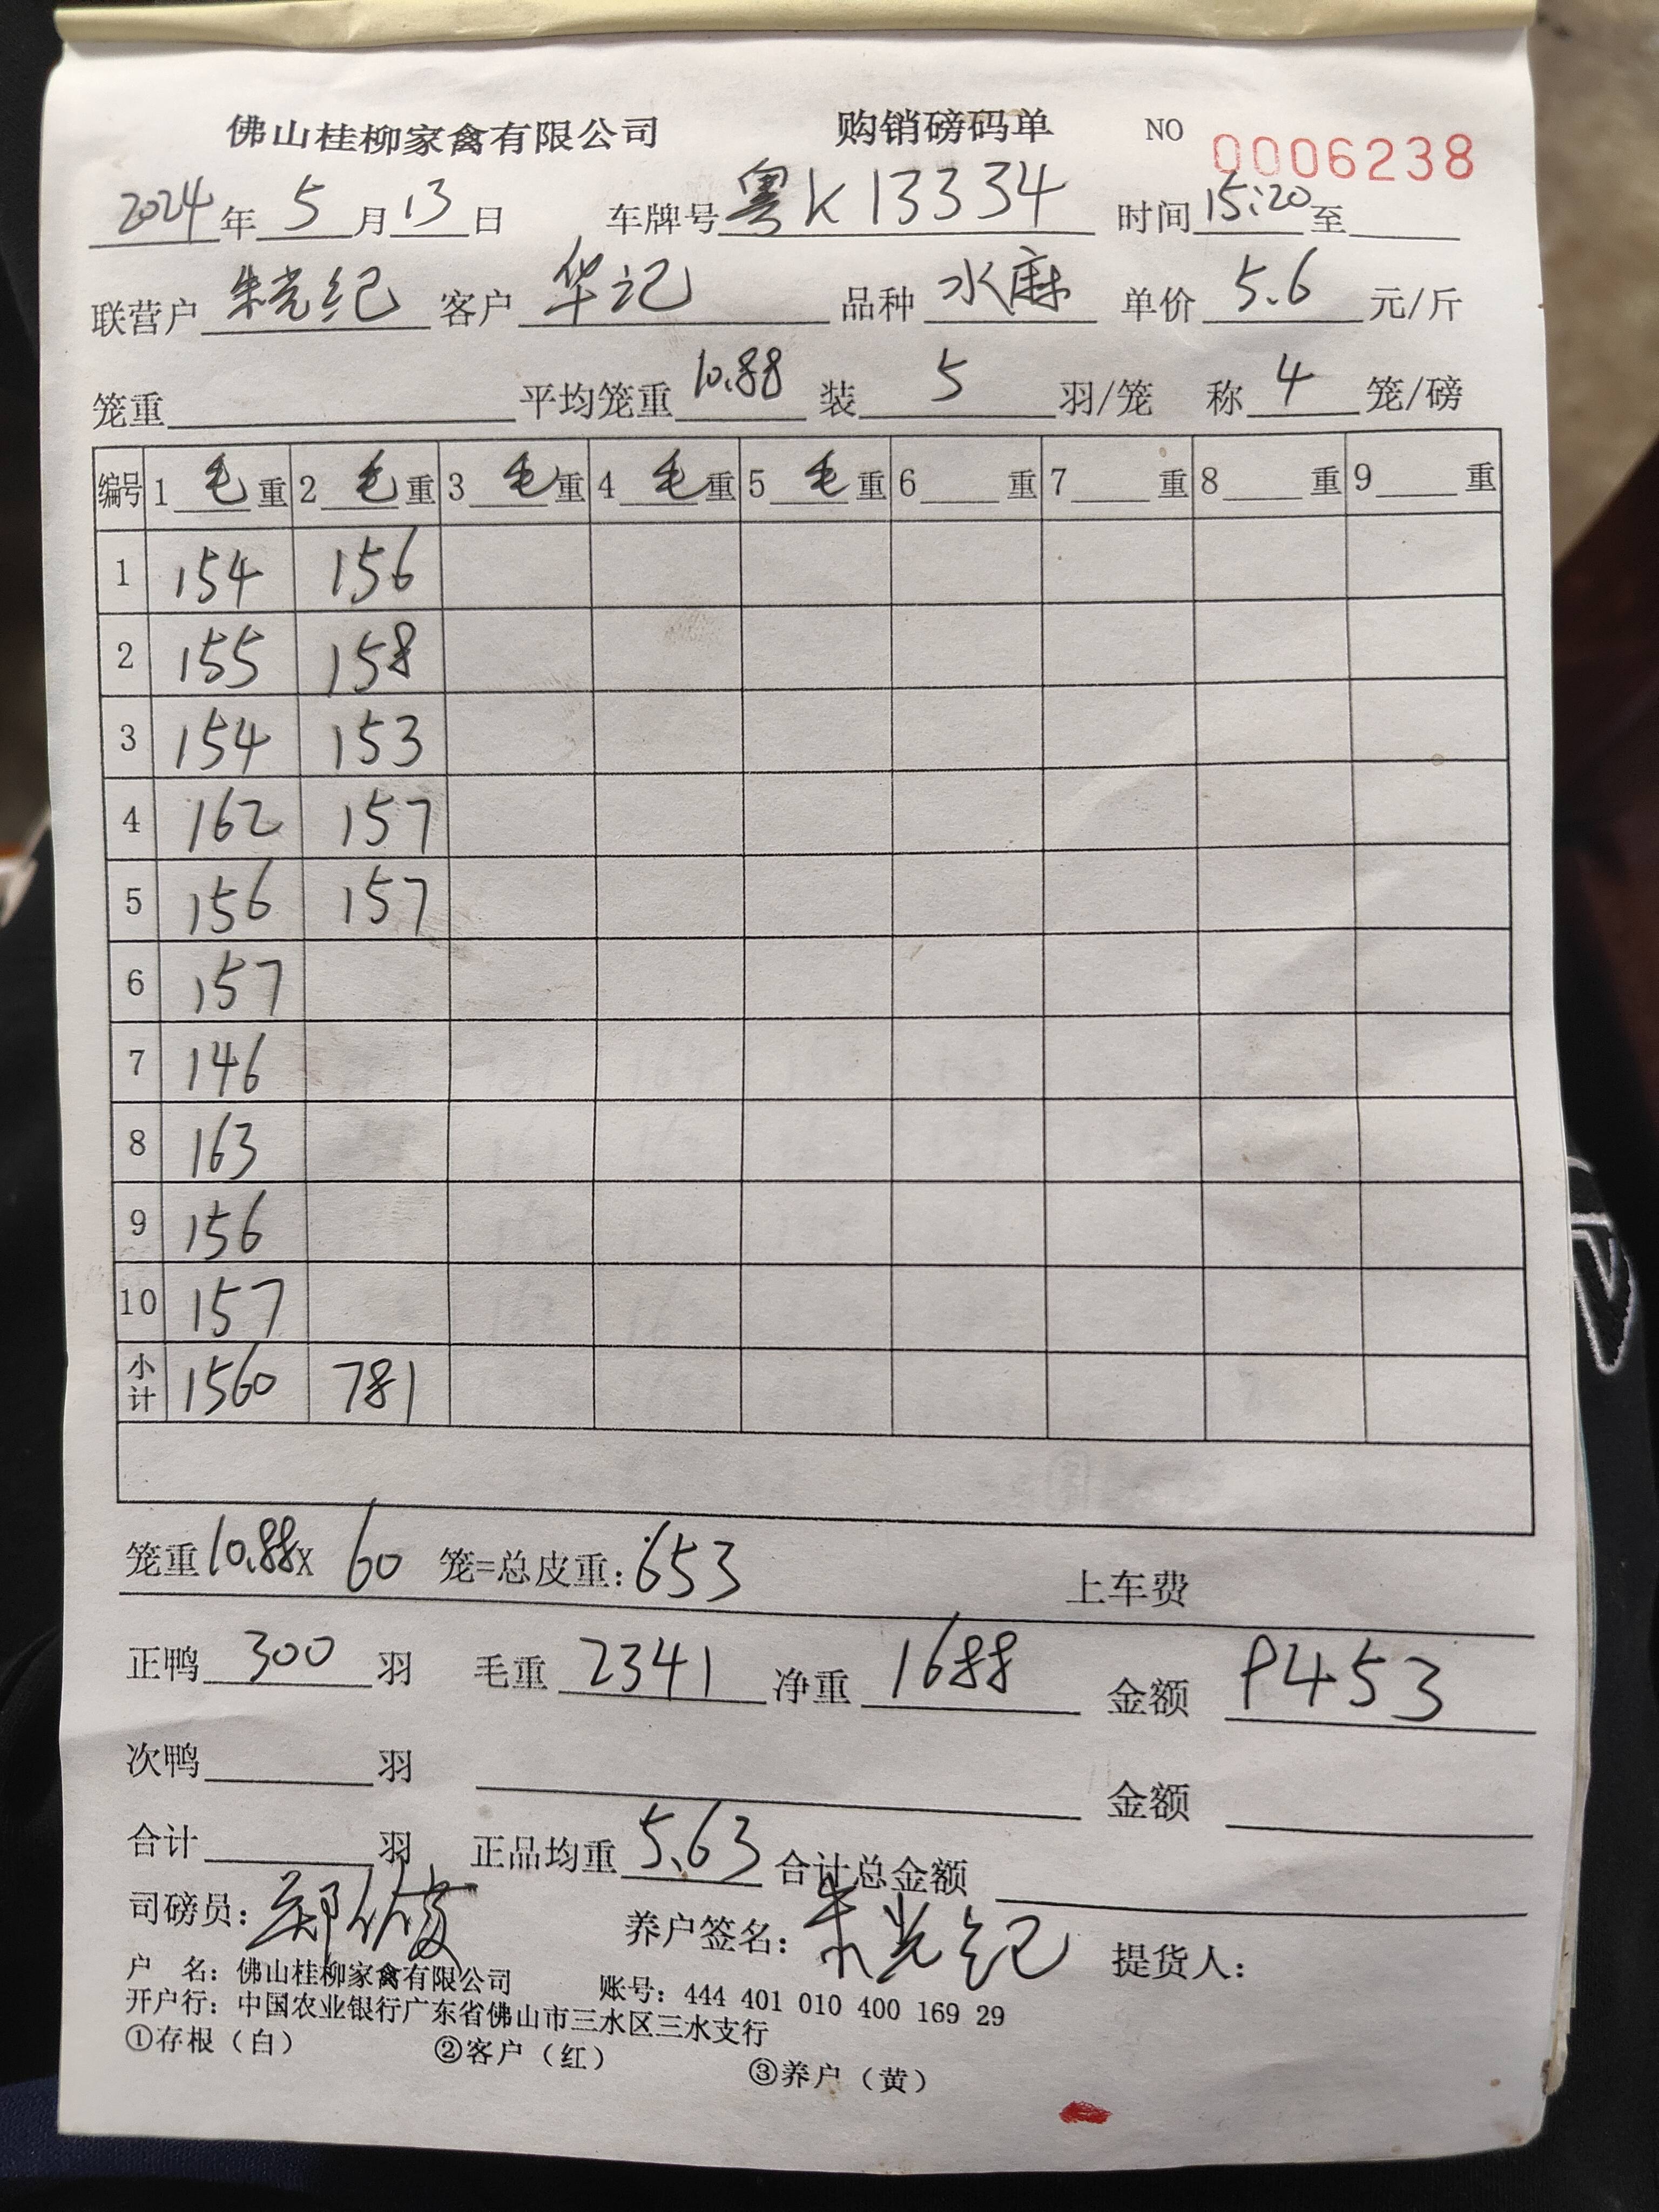 佛山桂柳家禽有限公司 购销磅码单 NO 0006238
2024年5月13日 车牌号粤K13334 时间15:20至
联营户朱光纪 客户华记 品种水麻 单价5.6元/斤
笼重 平均笼重10.88 装5羽/笼 称4笼/磅
编号 1毛重 2毛重 3毛重 4毛重 5毛重 6重 7重 8重 9重
1 154 156
2 155 158
3 154 153
4 162 157
5 156 157
6 157
7 146
8 163
9 156
10 157
小计 1560 781
笼重10.88x60笼=总皮重:653 上车费
正鸭300羽 毛重2341 净重1688 金额9453
次鸭羽 金额
合计羽 正品均重5.63 合计总金额
司磅员: 养户签名:朱光纪 提货人:
户 名:佛山桂柳家禽有限公司 账号:444 401 010 400 169 29
开户行:中国农业银行广东省佛山市三水区三水支行
①存根(白) ②客户(红) ③养户(黄)